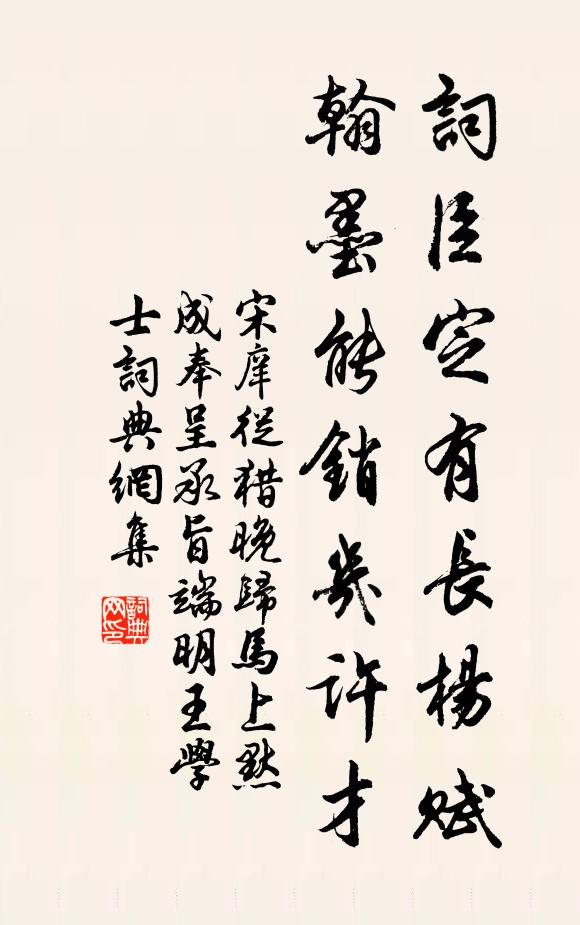 詞臣定有長楊賦
翰墨能銷幾許才
宋庠從猎晚歸馬上默
成奉呈承旨端明王學
士詞典網集
詞典网印